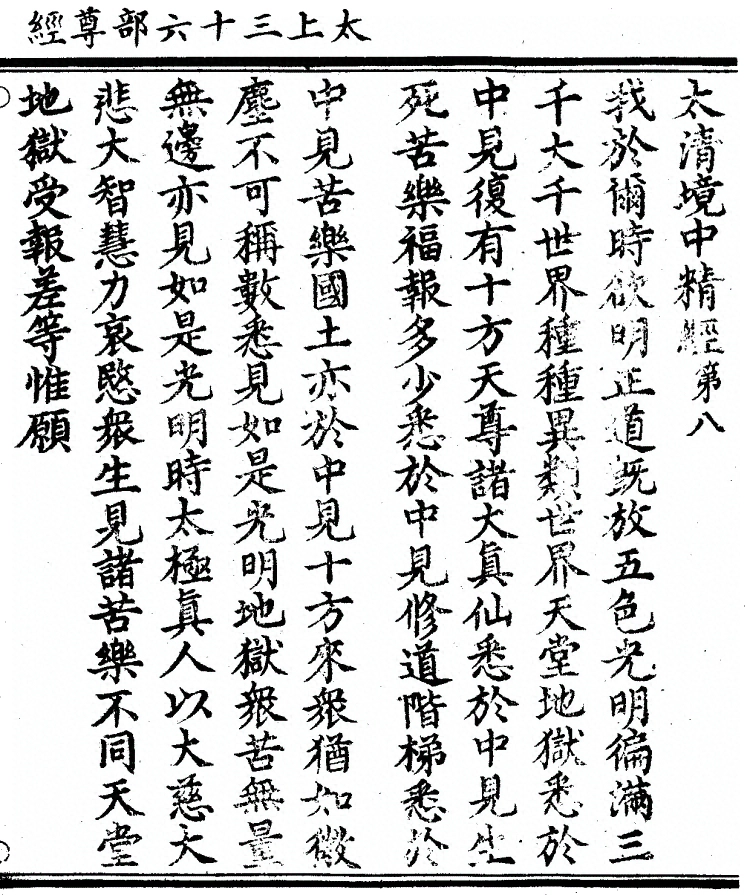 太上三十六部尊經
太清境中精經第八
我於爾時欲明正道旣放五色光明徧滿三
千大千世界種種異類世界天堂地獄悉於
中見復有十方天尊諸大眞仙悉於中見生
死苦樂福報多少悉於中見修道階梯悉於
中見苦樂國土亦於中見十方來衆猶如微
塵不可稱數悉見如是光明地獄衆苦無量
無邊亦見如是光明時太極眞人以大慈大
悲大智慧力哀愍衆生見諸苦樂不同天堂
地獄受報差等惟願